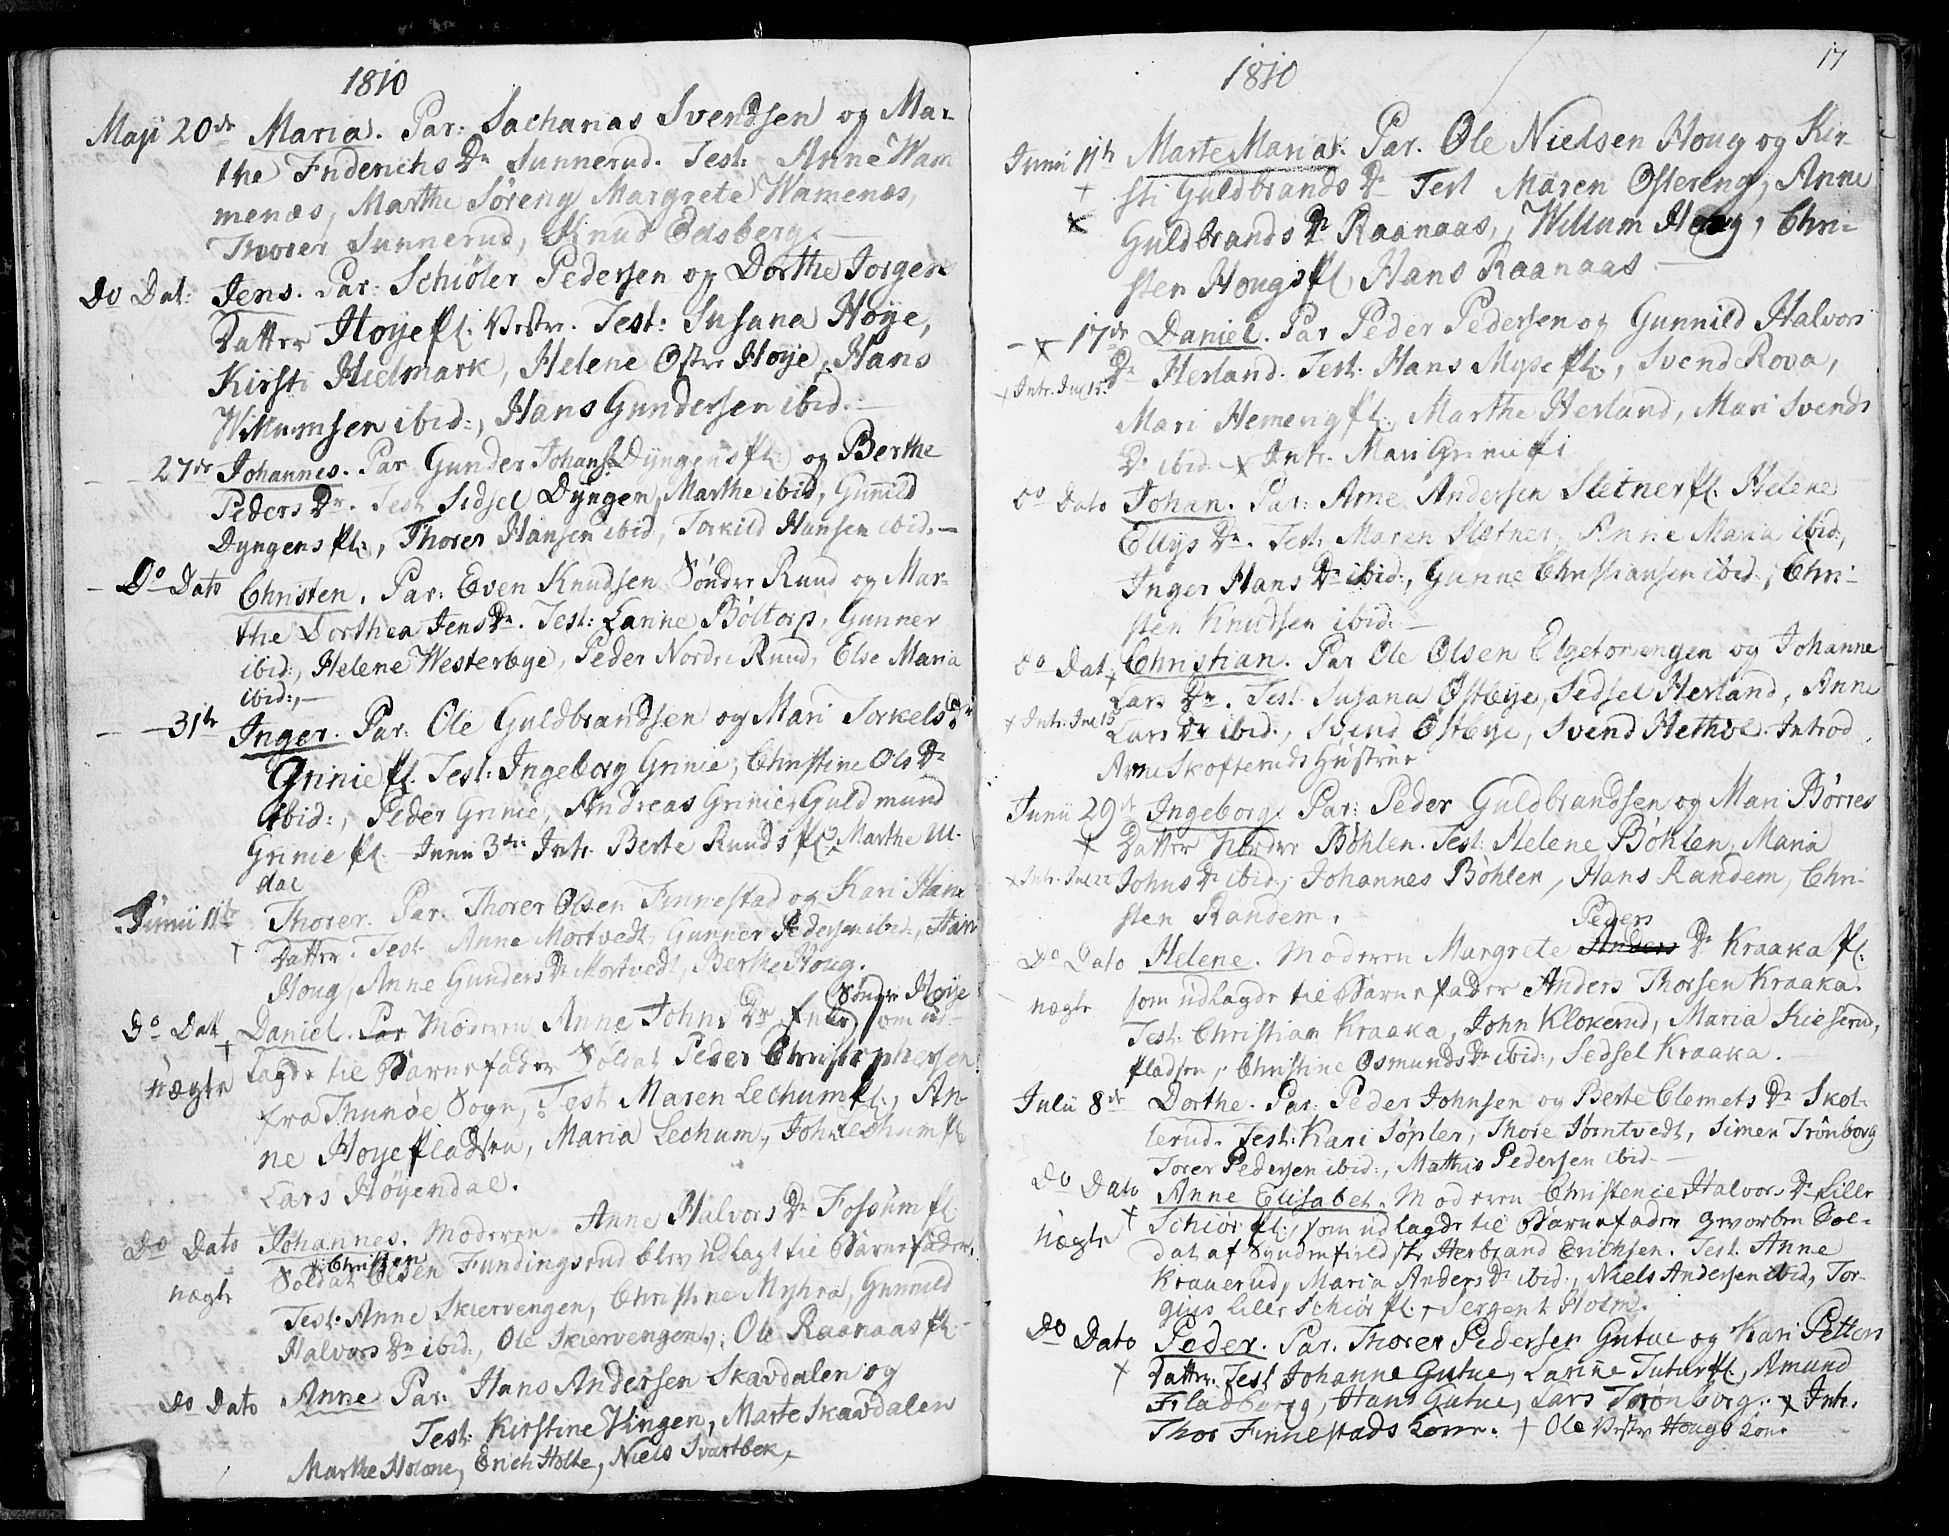 1810
Maji 20de Maria. Par: Sachanas Svendsen og Ma-
the Friderichs Dr Sunnerud. Test: Anne Wam
menæs, Marthe Søreng Margrete Wamenæs,
Thorer Sunnerud, Knud Edsberg. —
Do Dat: Jens. Par: Schiøler Pedersen og Dorthe Jorgens
Datter Høyepl. Vestre. Test: Susana Høye,
Kirsti Hielmark, Helene Østre Høye, Hans
Willumsen ibid:, Hans Gundersen ibid. —
— — 27de Johannes. Par Gunder Johans: Dyngenspl: og Berthe
Peders Dr. Test Sidsel Dyngen, Marthe ibid, Gunild
Dyngenspl:, Thorer Hansen ibid, Torkild Hansen ibid. —
— Do Dato Christen. Par: Even Knudsen Søndre Ruud og Mar-
the Dorthea Jens Dr. Test: Larine Bøltorp, Gunner
ibid:, Helene Westerbye, Peder Nordre Ruud, Else Maria
ibid:, —
— — 31te Inger. Par: Ole Guldbrandsen og Mari Torkels Dr
Griniepl. Test: Ingeborg Grinie, Christine Ols Dr
ibid:, Peder Grinie, Andreas Grinie, Guldmund
Griniepl. — Junii 3die Intr. Berte Ruudspl, Marthe M-
dal
Junii 11te Thorer. Par: Thorer Olsen Finnestad og Kari Hans
† Datter. Test Anne Mortvedt, Gunner Pedersen ibid., Hans
Houg, Anne Gunders Dr Mortvedt, Berthe Houg.
Søndre Høye
Do Dat Daniel. Par Moderen Anne Johns Dr Enke, som ud-
† lagde til Barnefader Soldat Peder Christophersen
nægte fra Thunøe Sogn, Test Maren Lechumpl:, An-
ne Høyepladsen, Maria Lechum, John Lechumpl
Lars Høyendal.
Do Dato Johannes. Moderen Anne Halvors Dr Fossumpl.
Christen
nægte Soldat Olsen Fundingsrud blev udlagt til Barnefader.
Test: Anne Skiervengen, Christine Myhra, Gunnild
Halvors Dr ibid:, Ole Skiervengen, Ole Raanaaspl. —
Do Dato Anne Par: Hans Andersen Skavdalen og
Test: Kirstine Vingen, Marte Skavdalen
Marthe Holone, Erich Holte, Niels Svartbek,
17
1810
Junii 11te Marte Maria. Par. Ole Nielsen Houg og Kir-
† sti Guldbrands Dr Test Maren Ostereng, Anne
x Guldbrands Dr Raanaas, Willum Houg, Chri-
sten Hougspl, Hans Raanaas —
— x 17de Daniel. Par Peder Pedersen og Gunnild Halvors
x Intr. Jul 15. Dr Herland. Test: Hans Mysepl:, Svend Rova,
Mari Hemengpl., Marthe Herland, Mari Svends
Dr ibid. x Intr. Mari Griniepl
Do Dato Johan. Par: Arne Andersen Sletnerpl. Helene
Ellys Dr. Test: Maren Slætner, Anne Maria ibid:,
Inger Hans Dr ibid:, Gunne Christiansen ibid:, Chri-
sten Knudsen ibid: —
Do Dat x Christian. Par Ole Olsen Elgetorvengen og Johanne
Lars Dr. Test. Susana Østbye, Sedsel Herland, Anne
x Intr. Jul 15 Lars Dr ibid., Svend Østbye, Svend Hethol. Introd.
Arne Skofteruds Hustrue
Junii 29de Ingeborg. Par: Peder Guldbrandsen og Mari Børres
† Datter Nordre Bøhlen. Test: Helene Bøhlen, Maria
x Intr. Jul 22 Johns Dr ibid., Johannes Bøhlen, Hans Randem, Chri-
sten Randem.
Peders
Do Dato Helene. Moderen Margrete Anders Dr Kraakapl.
nægte som udlagde til Barnefader Anders Thorsen Kraaka.
Test: Christian Kraaka, John Klokerud, Maria Kieserud,
pladsen, Christine Osmunds Dr ibid:, Sedsel Kraaka.
Julii 8de Dorthe. Par: Peder Johnsen og Berte Clemets Dr Skol-
lerud. Test: Kari Søpler, Thore Brntvedt, Simen Trønborg
Torer Pedersen ibid:, Mathis Pedersen ibid —
Do Dato Anne Elisabet. Moderen Christence Halvors Dr Lille
† Schiørpl:, som udlagde til Barnefader gevorben Sol-
nægte dat af Syndenfieldske Herbrand Erichsen. Test. Anne
Krauerud, Maria Anders Dr ibid:, Niels Andersen ibid, Tor-
gius Lille Schiørpl:, Sergent Holm.
Do Dato Peder. Par. Thorer Pedersen Gutue og Kari Petters
† Datter. Test Johanne Gutue, Larine Tuturpl, Amund
Fladberg, Hans Gutue, Lars Torønborg. x Intr.
Thor Finnestads Kone. † Ole Vestre Hougs Kone